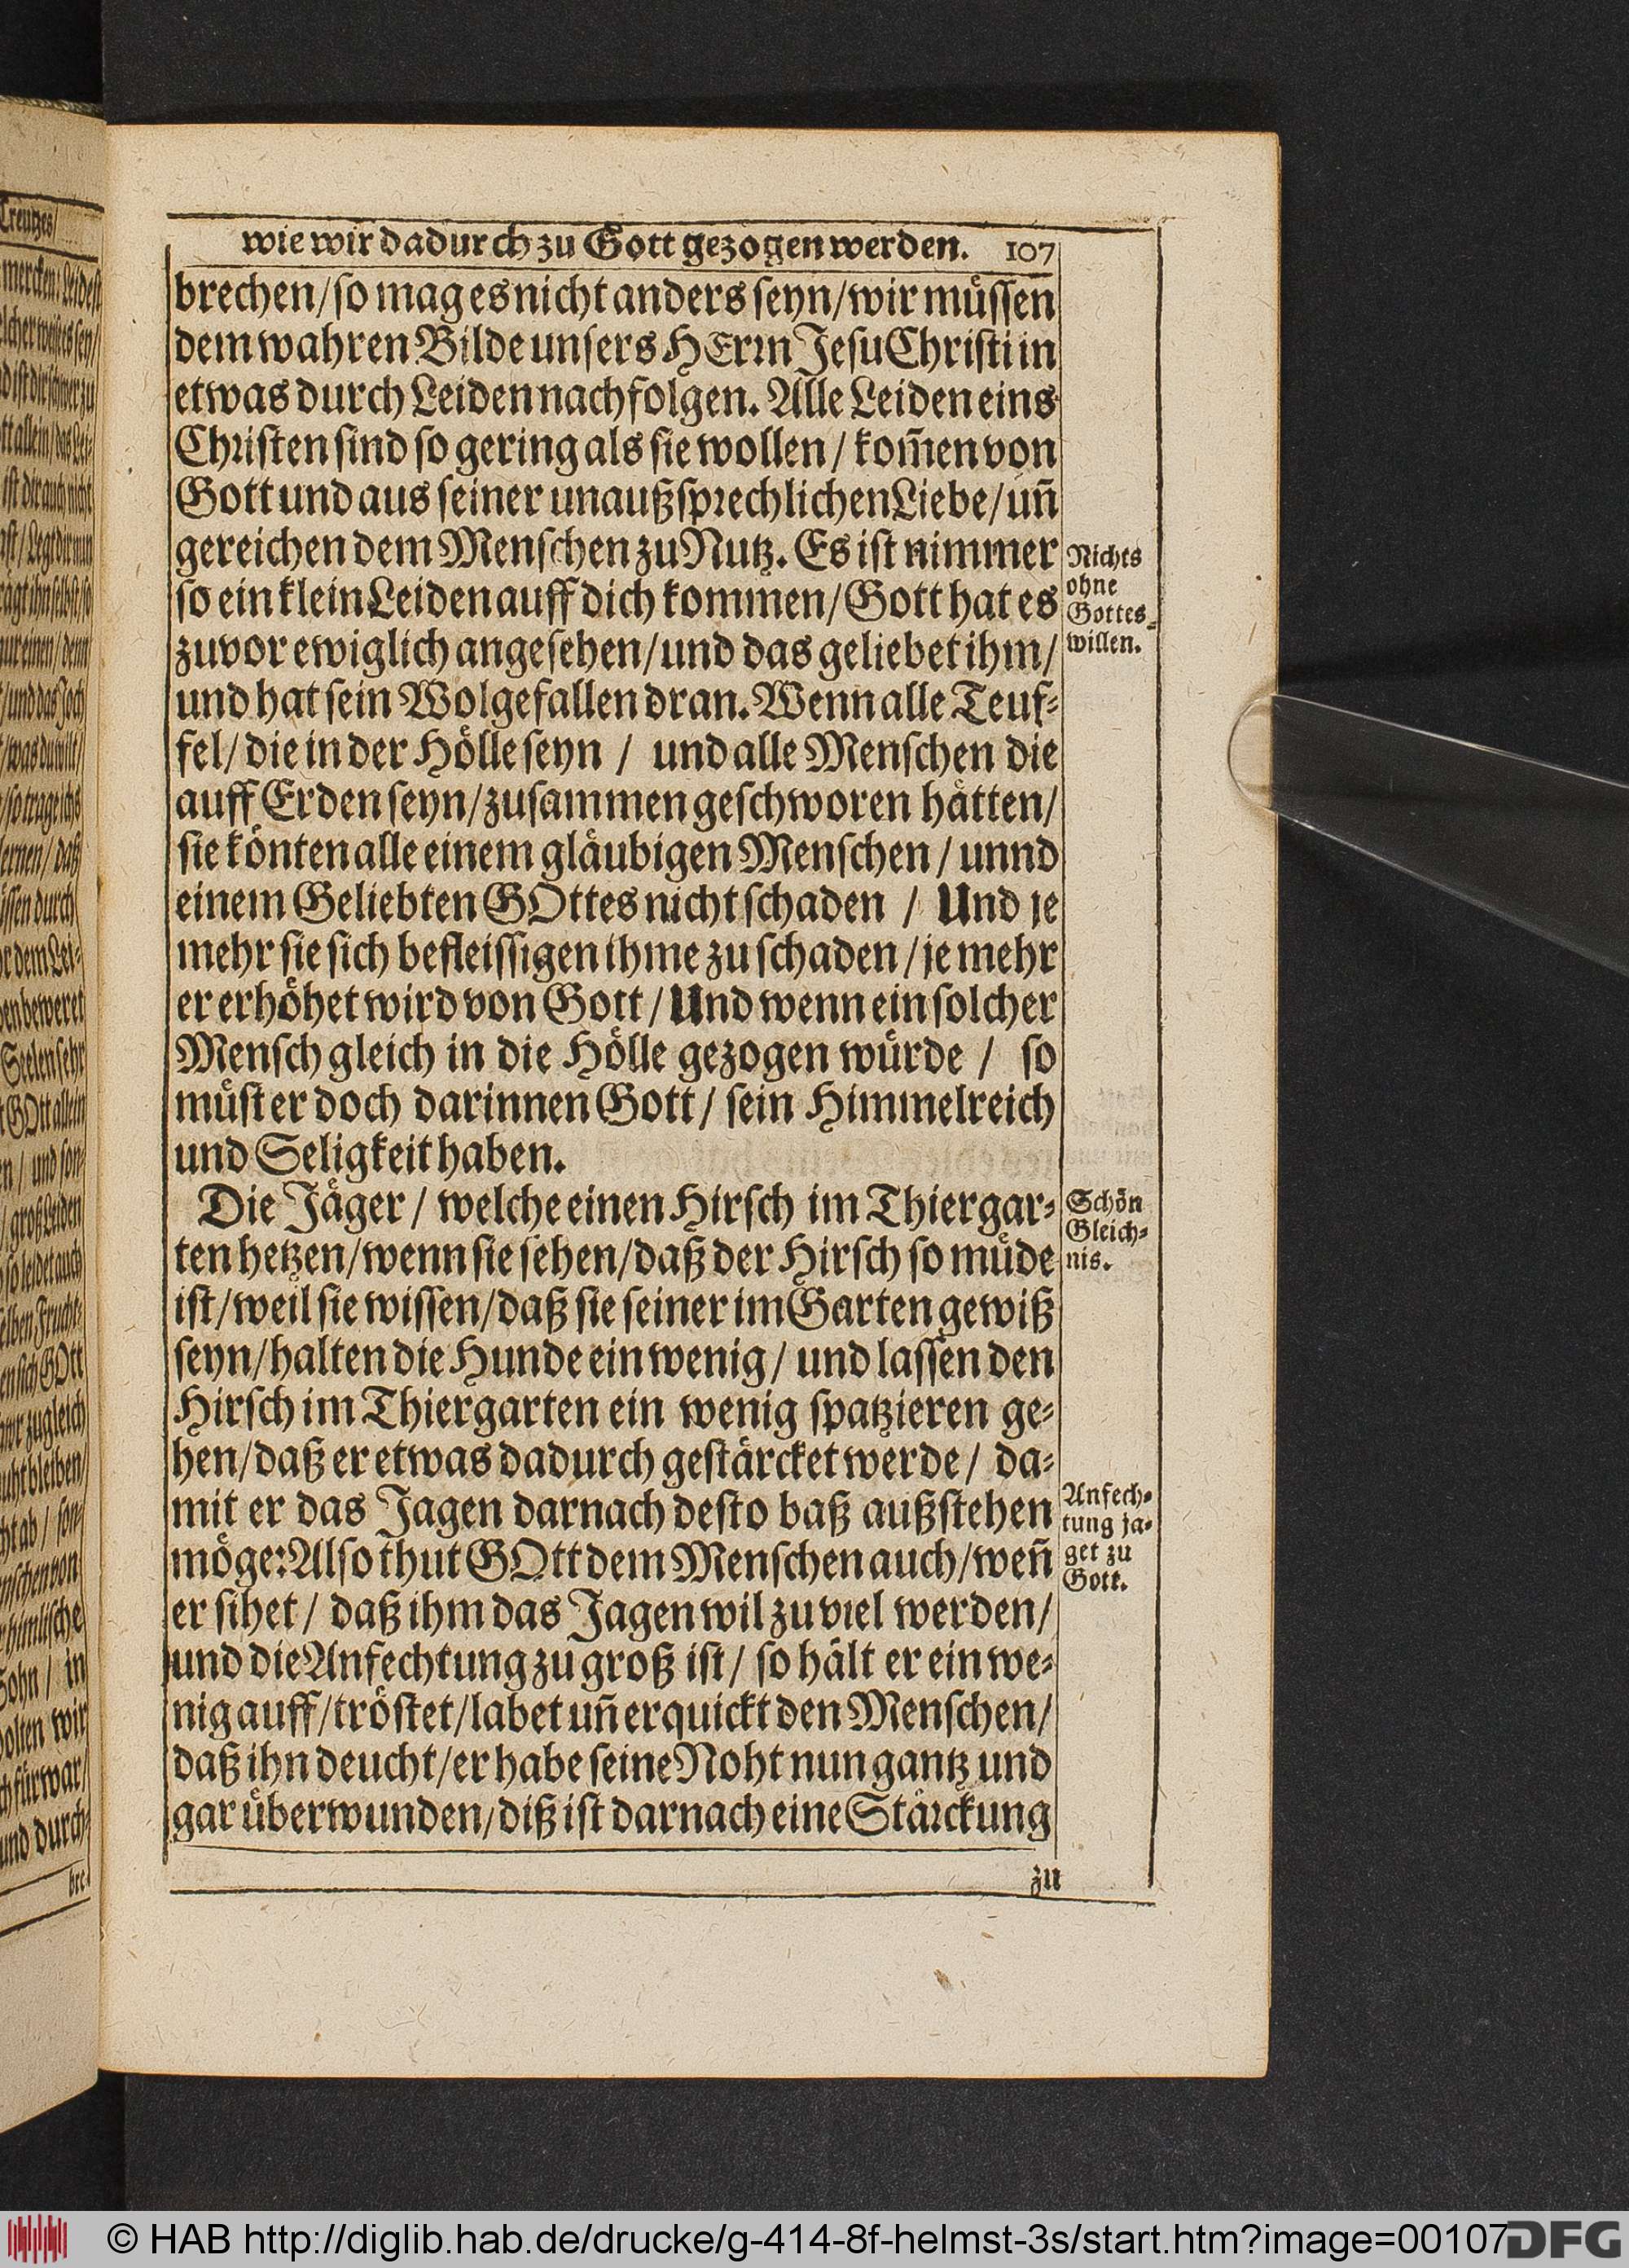 wie wir dadurch zu Gott gezogen werden. 107
brechen/so mag es nicht anders seyn/wir müssen
dem wahren Bilde unsers HErrn Jesu Christi in
etwas durch Leiden nachfolgen. Alle Leiden eins
Christen sind so gering als sie wollen / kom̃en von
Gott und aus seiner unaußsprechlichen Liebe/ uñ
gereichen dem Menschen zu Nutz. Es ist nimmer
so ein klein Leiden auff dich kommen/ Gott hat es
zuvor ewiglich angesehen/und das geliebet ihm/
und hat sein Wolgefallen dran. Wenn alle Teuf-
fel/ die in der Hölle seyn / und alle Menschen die
auff Erden seyn/zusammen geschworen hätten/
sie könten alle einem gläubigen Menschen / unnd
einem Geliebten GOttes nicht schaden / Und je
mehr sie sich befleissigen ihme zu schaden / je mehr
er erhöhet wird von Gott / Und wenn ein solcher
Mensch gleich in die Hölle gezogen würde / so
müst er doch darinnen Gott / sein Himmelreich
und Seligkeit haben.
Die Jäger / welche einen Hirsch im Thiergar-
ten hetzen/wenn sie sehen/daß der Hirsch so müde
ist/weil sie wissen/daß sie seiner im Garten gewiß
seyn/halten die Hunde ein wenig / und lassen den
Hirsch im Thiergarten ein wenig spatzieren ge-
hen/daß er etwas dadurch gestärcket werde / da-
mit er das Jagen darnach desto baß außstehen
möge: Also thut GOtt dem Menschen auch/weñ
er sihet / daß ihm das Jagen wil zu viel werden/
und die Anfechtung zu groß ist / so hält er ein we-
nig auff/tröstet/labet uñ erquickt den Menschen/
daß ihn deucht/er habe seine Noht nun gantz und
gar überwunden/diß ist darnach eine Stärckung
zu
Nichts
ohne
Gottes-
willen.
Schön
Gleich-
nis.
Anfech-
tung ja-
get zu
Gott.
© HAB http://diglib.hab.de/drucke/g-414-8f-helmst-3s/start.htm?image=00107
DFG